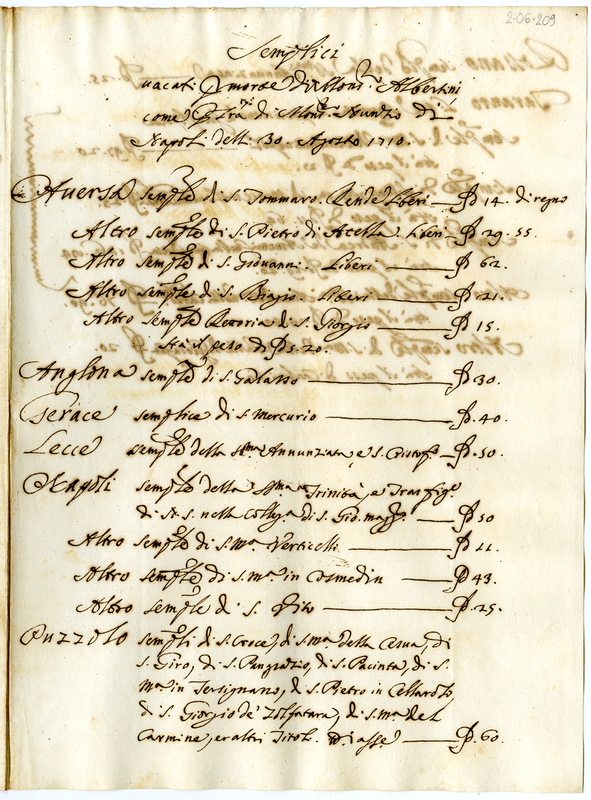 2-06-209
Semplici
vacati p morte di Mons.r Albertini
come p l'ra di Mons.r Nunzio di
Napoli delli 30. Agosto 1710.
Aversa semp.le di S. Tommaro. Rende liberi — D 14. di regno
Altro semp.le di S. Pietro di Atella. liberi — D 29-55.
Altro semp.le di S. Giovanni. Liberi — D 62.
Altro semp.le di S. Biagio. liberi — D 21.
Altro semp.le Rettoria di S. Giorgio — D 15.
Hà il peso di D 5.20.
Anglona semp.le di S. Galasso — D 30.
Gerace semplice di S. Mercurio — D. 40.
Lecce semp.le della SS.ma Annunziata, e S. Cristof.o — D. 50.
Napoli semp.le della SS.ma Trinità, e Trasfig.e
di N. S. nella Colleg.a di S. Gio. magg.e — D 50
Altro semp.le di S. M.a Verticelli — D 22.
Altro semp.le di S. M.a in Cosmedin — D 43.
Altro semp.le di S. Vito — D. 25.
Puzzolo sempli di S. Croce, di S. M.a della Cesua, di
S. Giro, di S. Pangrazio, di S. Pacinta, di S.
M.a in Sersignano, di S. Pietro in
di S. Giorgio de' Zolfatara, di S. M.a del
Carmine, et altri Titoli — D. 60.